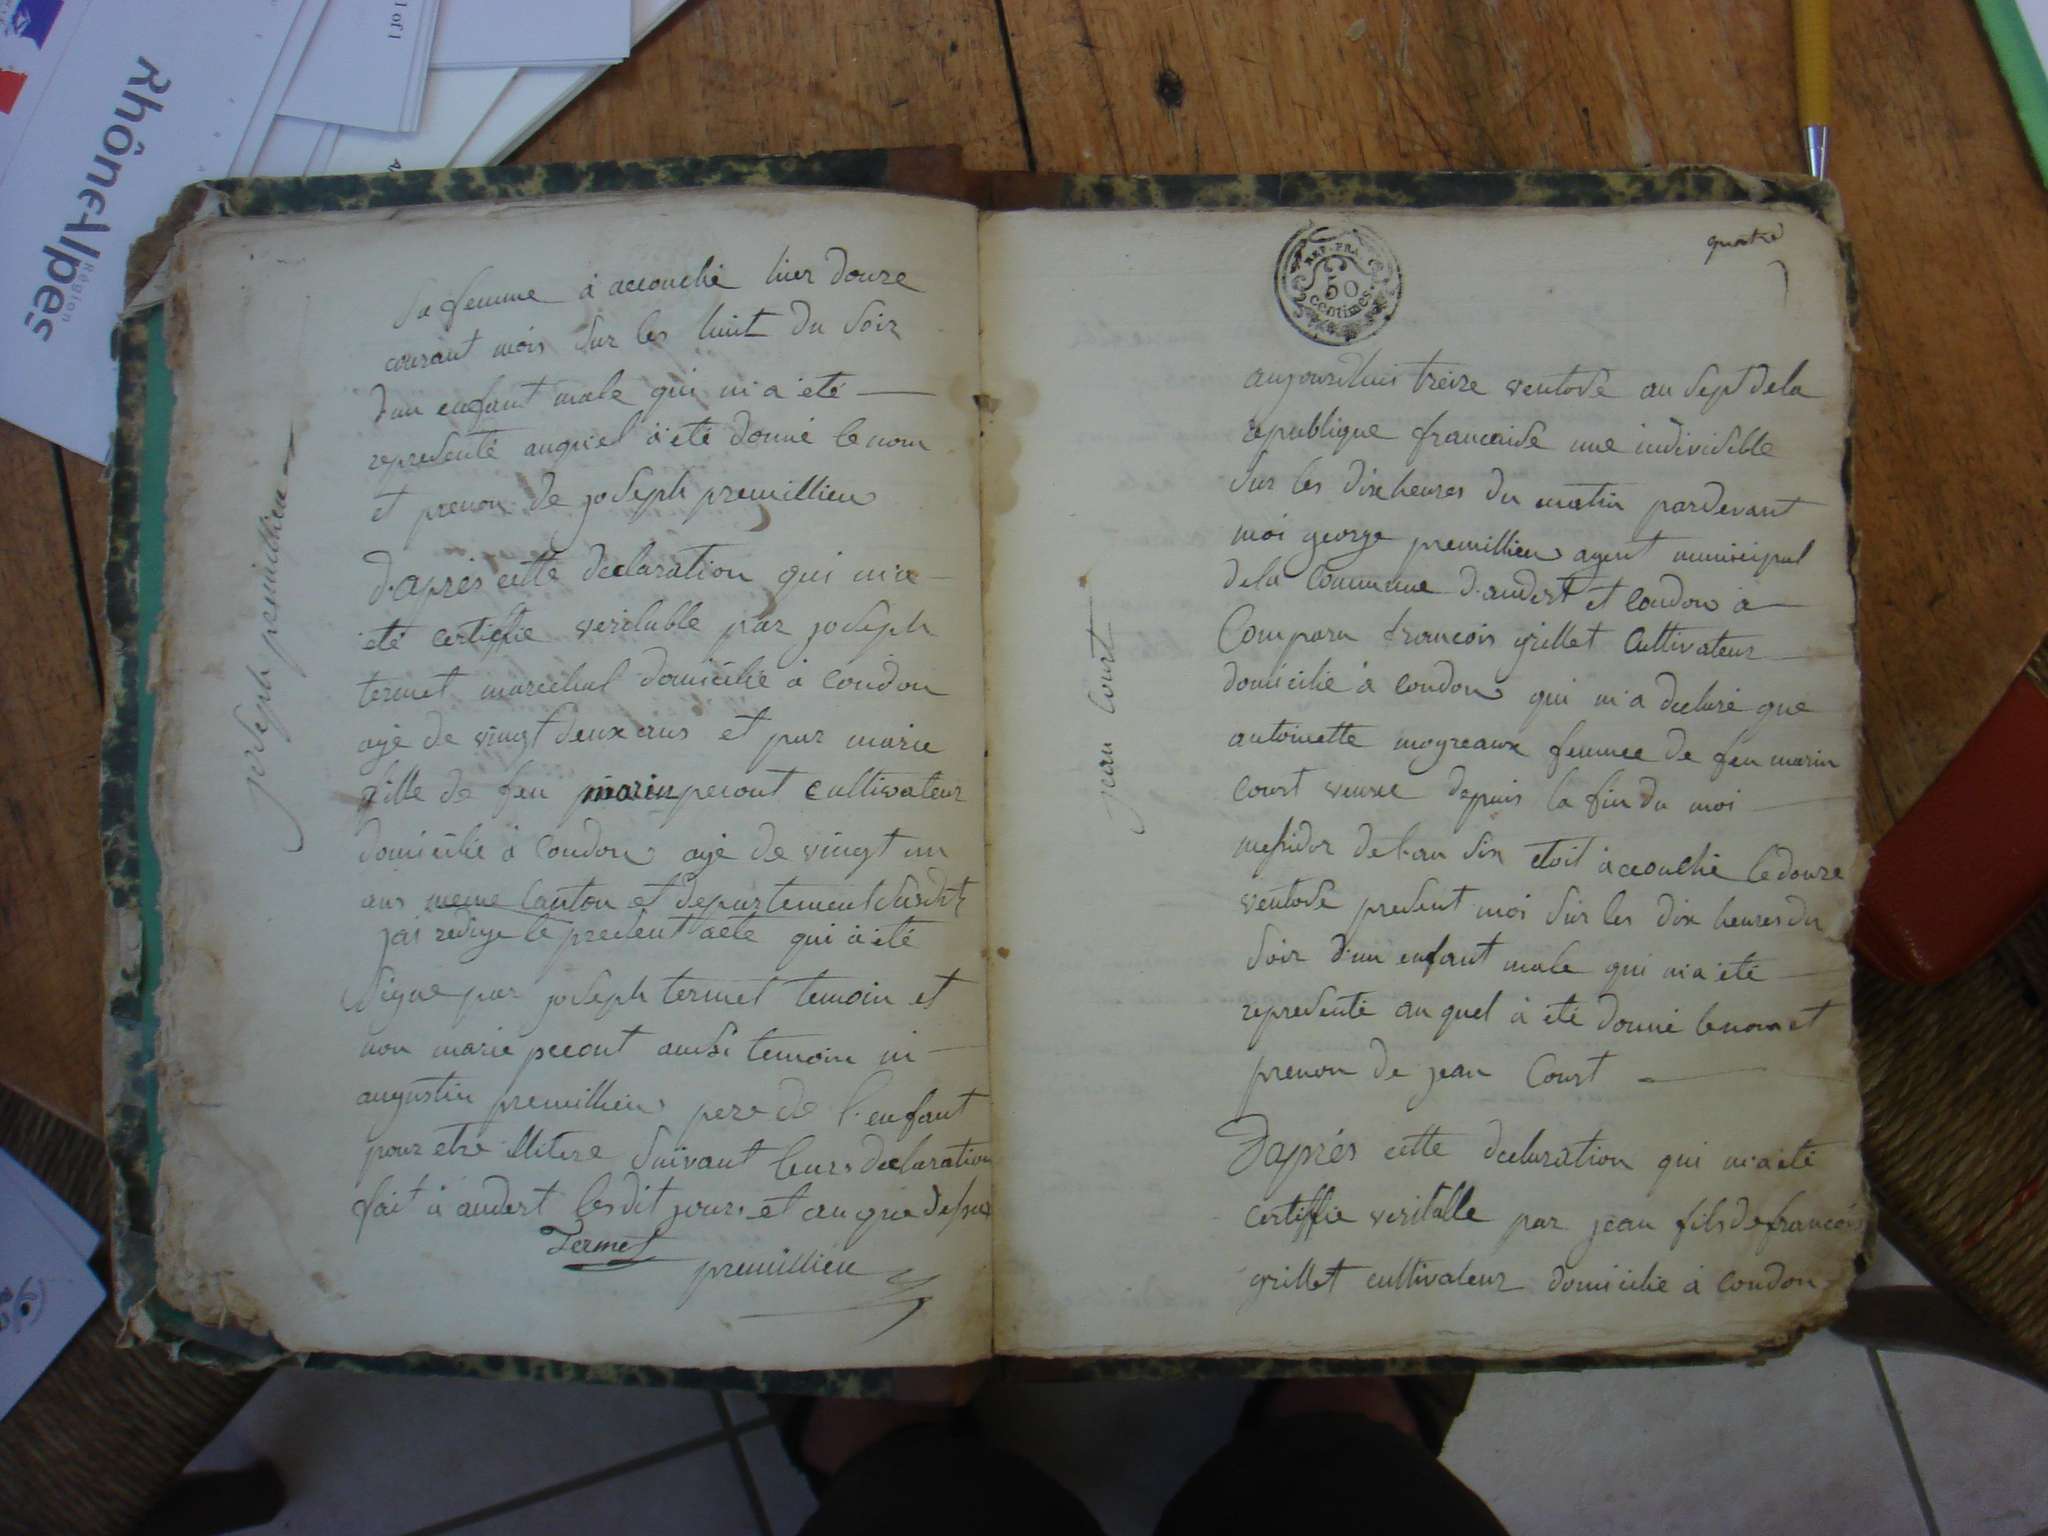 Rhône-Alpes
Région
1 of 1
joseph premillieu
sa femme à accouché hier douze
courant mois sur les huit du soir
d'un enfant male qui m'a été
representé auquel à été donné le nom
et prenon de joseph premillieu
d'aprés cette declaration qui m'a
été certiffié veritable par joseph
termet marechal domicilié à condon
agé de vingt deux ans et par marie
fille de feu marin peront cultivateur
domicilié à Condon agé de vingt un
ans meme Canton et departement susdit
j'ai redigé le present acte qui à été
signé par joseph termet temoin et
non marie peront aussi temoin ni
augustin premillieu pere de l'enfant
pour etre illitere suivant leurs declaration
fait à andert lesdit jours et an que dessus
Termet
premillieu
REP. FRA.
50
centimes
quatre
jean Court
aujourdhui treize ventose an sept dela
republique francaise une indivisible
sur les dix heures du matin pardevant
moi george premillieu agent municipal
dela Commune d'andert et condon à
Comparu francois grillet Cultivateur
domicilié à condon qui m'a declaré que
antoinette moyreaux femme de feu marin
court veuve depuis la fin du moi
messidor de l'an six etoit accouché le douze
ventose present moi sur les dix heures du
soir d'un enfant male qui m'a été
representé auquel à été donné le nom et
prenon de jean Court
D'aprés cette declaration qui m'a été
certiffié veritable par jean fils de francois
grillet cultivateur domicilié à condon